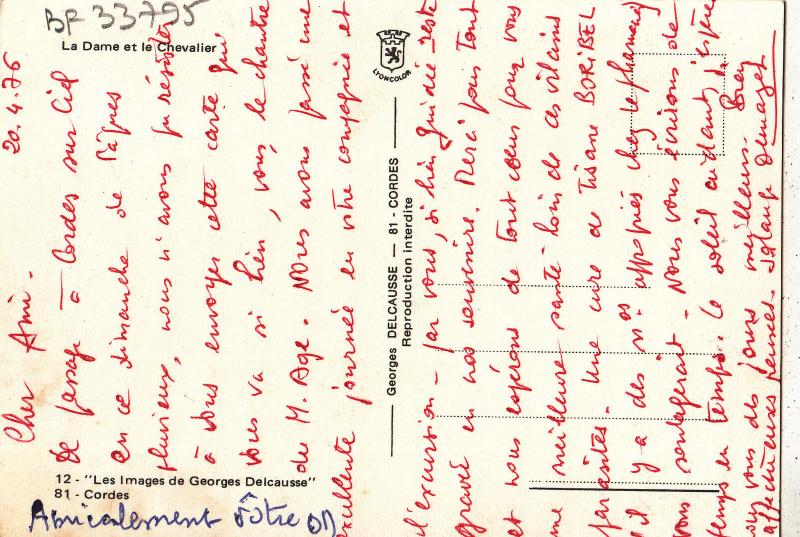 BF 33795
La Dame et le Chevalier
LYONCOLOR
20.4.76
Cher Ami.
De passage à Cordes sur Ciel
en ce dimanche de Pâques
pluvieux, nous n'avons pu résister
à vous envoyer cette carte qui
vous va si bien, vous, le chantre
du M. Age. Nous avons passé une
excellente journée en votre compagnie et
l'excursion - par vous, si bien guidée reste
gravée en nos souvenirs. Merci pour tout
et nous espérons de tout cœur pour vous
une meilleure santé - loin de ces vilains
parasites. Une cure de Tisane BORIBEL
il y a des n°s appropriés chez le pharmacien
vous soulagerait - Nous vous écrirons de
temps en temps. Le soleil aidant, j'espère
vous des jours meilleurs.
affectueuses pensées. Solange
Georges DELCAUSSE — 81 - CORDES
Reproduction interdite
12 - "Les Images de Georges Delcausse"
81 - Cordes
Amicalement vôtre